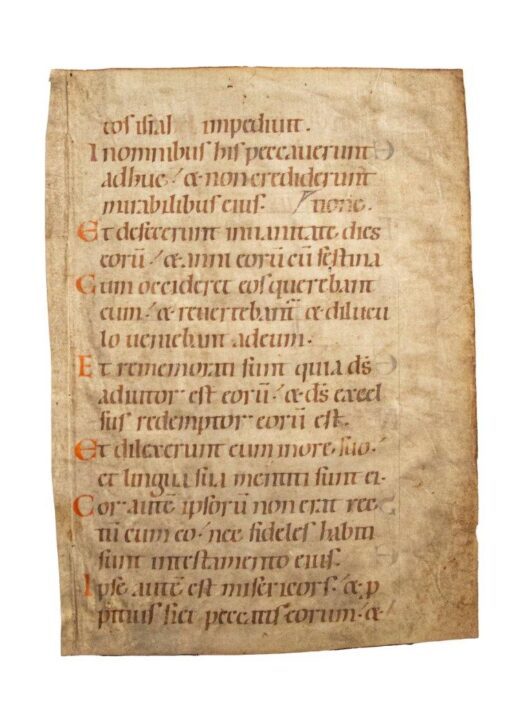 tos isral impedivit.
In omnibus his peccaverunt
adhuc / & non crediderunt
mirabilibus eius. / tione.
Et defecerunt in vanitate dies
eorū / & anni eorū cū festina
Cum occideret eos querebant
eum / & revertebant̄ & dilucu
lo veniebant ad eum.
Et rememorati sunt quia ds̄
adiutor est eorū / & ds̄ excel
sus redemptor eorū est.
Et dilexerunt eum in ore suo.
et lingua sua mentiti sunt ei.
Cor autē ipsorū non erat rec
tū cum eo / nec fideles habiti
sunt in testamento eius.
Ipse autē est misericors / & p
pitius fiet peccatis eorum / &